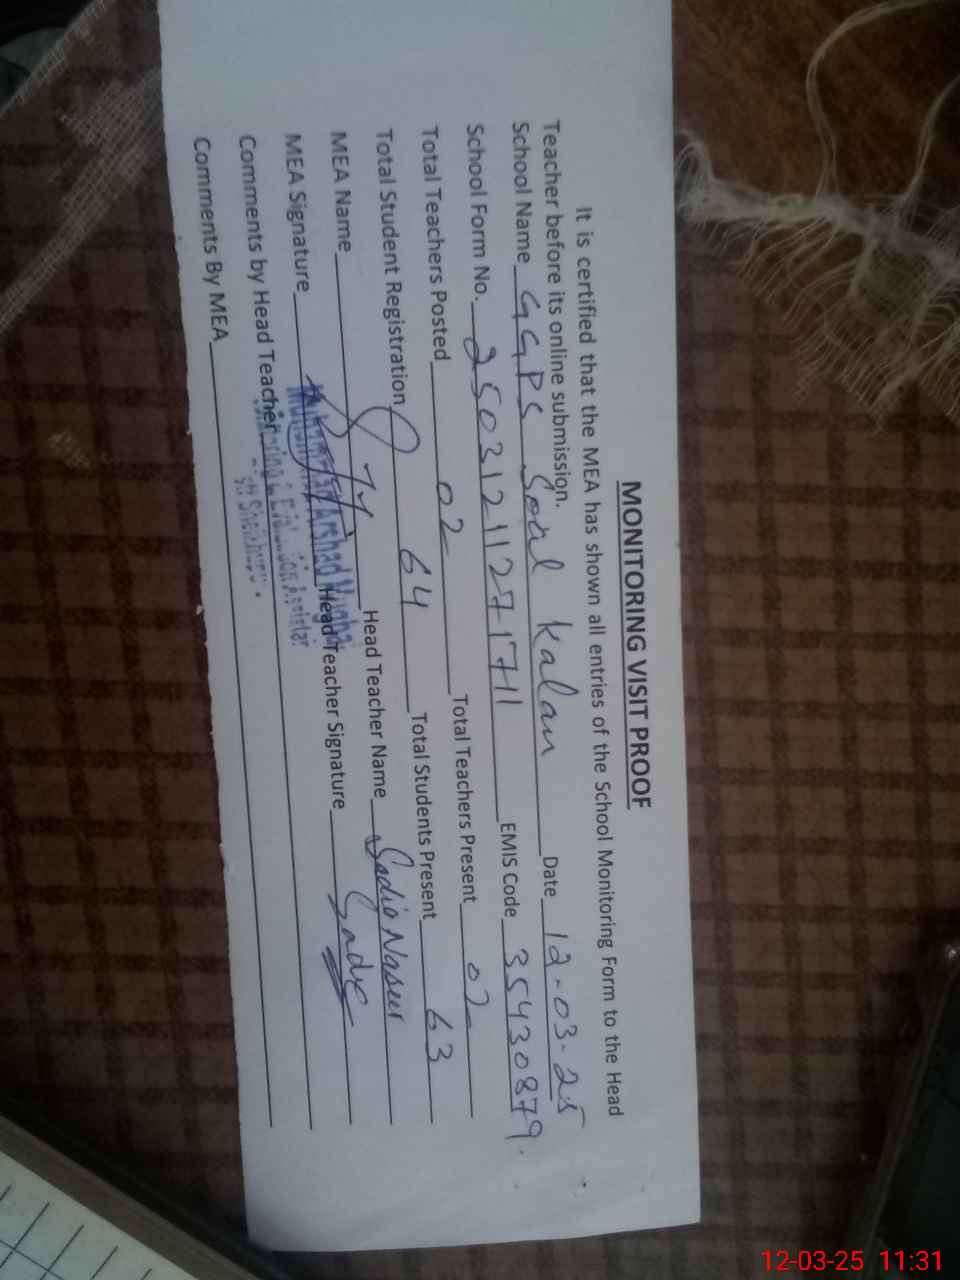 MONITORING VISIT PROOF
It is certified that the MEA has shown all entries of the School Monitoring Form to the Head
Teacher before its online submission.
School Name GGPS Kalan Date 12-03-25
School Form No. EMIS Code 35430879.
Total Teachers Posted 02 Total Teachers Present 02
Total Student Registration 64 Total Students Present 63
MEA Name Head Teacher Name Sadia Naseer
MEA Signature Head Teacher Signature
Comments by Head Teacher
Comments By MEA
Muhammad Arshad Mughal
Monitoring & Evaluation Assistant
12-03-25 11:31